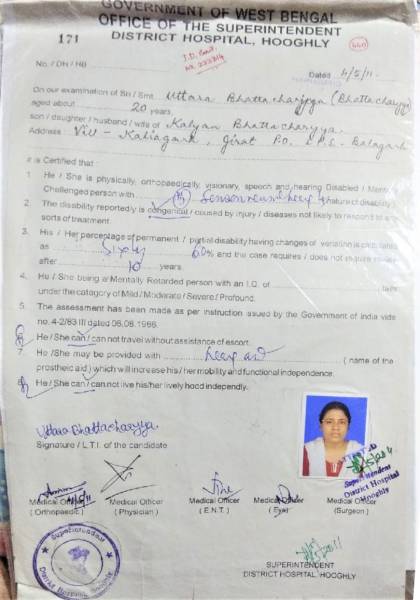 GOVERNMENT OF WEST BENGAL
OFFICE OF THE SUPERINTENDENT
171 DISTRICT HOSPITAL, HOOGHLY
No. / DN / HB
Dated 4/5/11
On our examination of Sri / Smt. Uttara Bhattacharjya (Bhattacharyya)
aged about 20 years.
son / daughter / husband / wife of Kalyan Bhattacharyya
Address : Vill - Kaliagarh, Girat P.O. P.S. Balagarh
It is Certified that :
1. He / She is physically, orthopaedically, visionary, speech and hearing Disabled / Mental
Challenged person with Sensorineural (Nature of disability)
2. The disability reportedly is congenital / caused by injury / diseases not likely to respond to any
sorts of treatment.
3. His / Her percentage of permanent / partial disability having changes of variation is calculated
as Sixty 60% and the case requires / does not require review
after 10 years.
4. He / She being a Mentally Retarded person with an I.Q. of
under the catagory of Mild / Moderate / Severe / Profound.
5. The assessment has been made as per instruction issued by the Government of India vide
no. 4-2/83 III dated 06.08.1966.
6. He / She can / can not travel without assistance of escort.
7. He / She may be provided with ( name of the
prostheic aid ) which will increase his / her mobility and functional independence.
8. He / She can / can not live his/her lively hood independently.
Uttara Bhattacharyya
Signature / L.T.I. of the candidate
Superintendent
District Hospital
Hooghly
Medical Officer Medical Officer Medical Officer Medical Officer Medical Officer
( Orthopaedic ) ( Physician ) ( E.N.T. ) ( Eye ) (Surgeon)
Superintendent
District Hospital
SUPERINTENDENT
DISTRICT HOSPITAL, HOOGHLY